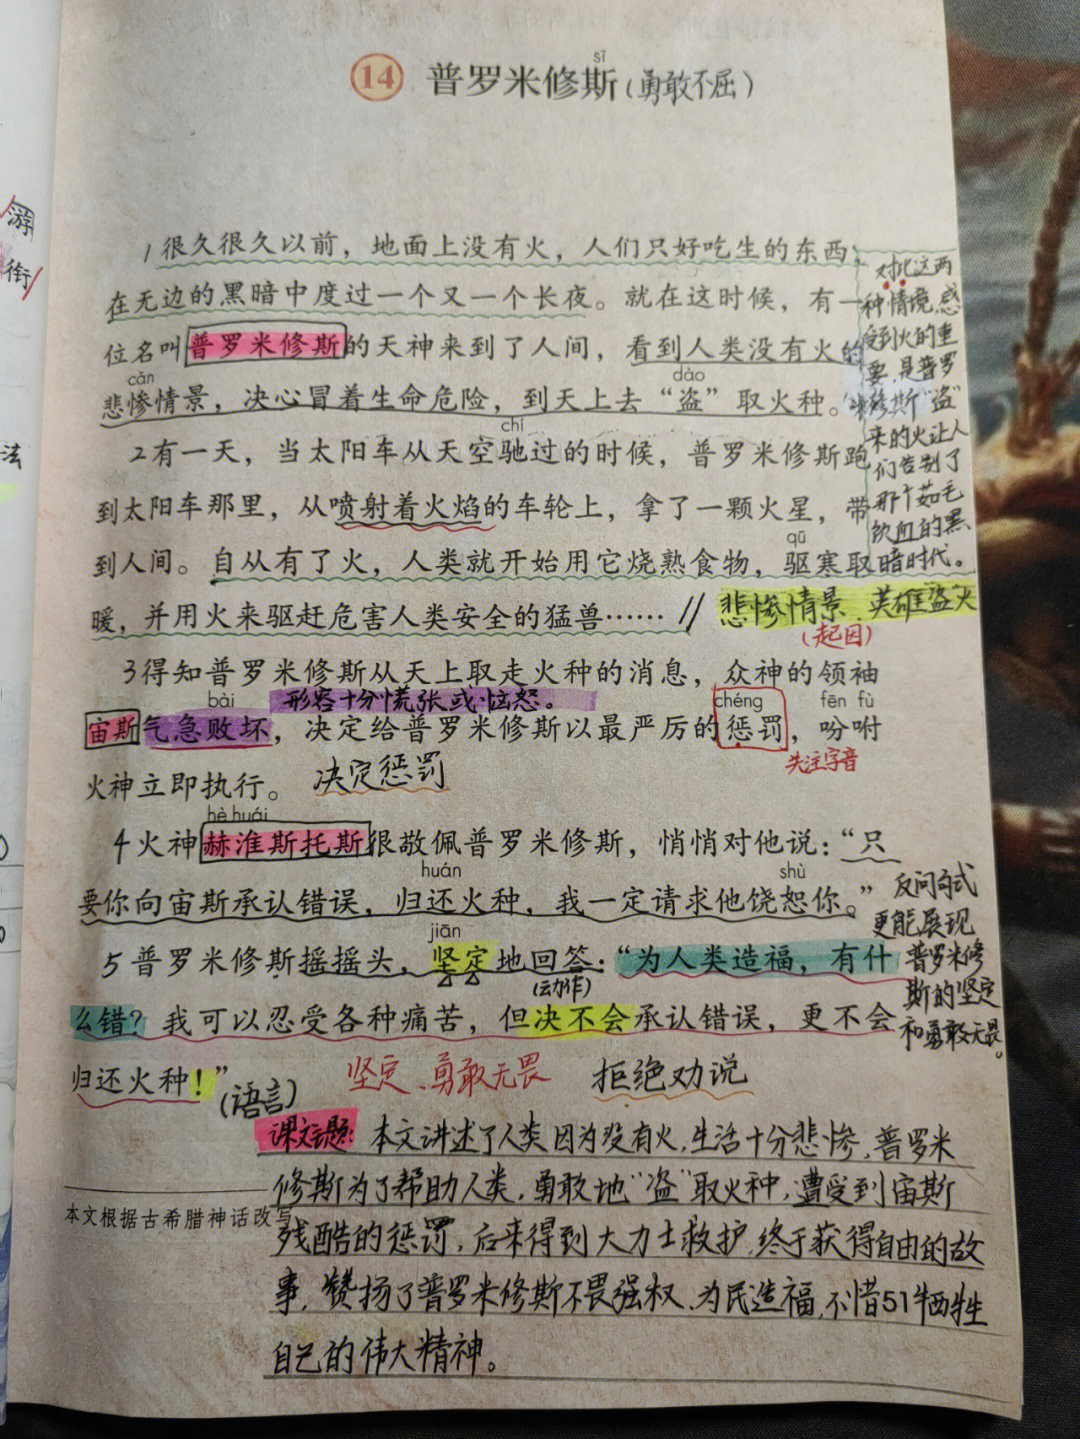 sī
14 普罗米修斯(勇敢不屈)
1很久很久以前，地面上没有火，人们只好吃生的东西，
在无边的黑暗中度过一个又一个长夜。就在这时候，有一
位名叫普罗米修斯的天神来到了人间，看到人类没有火的
cǎn dào
悲惨情景，决心冒着生命危险，到天上去“盗”取火种。
chí
2有一天，当太阳车从天空驰过的时候，普罗米修斯跑
到太阳车那里，从喷射着火焰的车轮上，拿了一颗火星，带
qū
到人间。自从有了火，人类就开始用它烧熟食物，驱寒取
暖，并用火来驱赶危害人类安全的猛兽……//
对比这两
种情境，感
受到火的重
要，是普罗
米修斯“盗”
来的火让人
们告别了
那个茹毛
饮血的黑
暗时代。
悲惨情景、英雄“盗”火
(起因)
3得知普罗米修斯从天上取走火种的消息，众神的领袖
bài 形容十分慌张或恼怒。 chéng fēn fù
宙斯气急败坏，决定给普罗米修斯以最严厉的惩罚，吩咐
关注字音
火神立即执行。 决定惩罚
hè huái
4火神赫淮斯托斯很敬佩普罗米修斯，悄悄对他说：“只
huán shù
要你向宙斯承认错误，归还火种，我一定请求他饶恕你。”
jiān
5普罗米修斯摇摇头，坚定地回答：“为人类造福，有什
(动作)
么错？我可以忍受各种痛苦，但决不会承认错误，更不会
归还火种！”
(语言)
坚定、勇敢无畏 拒绝劝说
反问句式
更能展现
普罗米修
斯的坚定
和勇敢无畏。
课文主题：本文讲述了人类因为没有火，生活十分悲惨，普罗米
修斯为了帮助人类，勇敢地“盗”取火种，遭受到宙斯
残酷的惩罚，后来得到大力士救护，终于获得自由的故
事，赞扬了普罗米修斯不畏强权、为民造福，不惜51牺牲
自己的伟大精神。
本文根据古希腊神话改写
游
衔
法